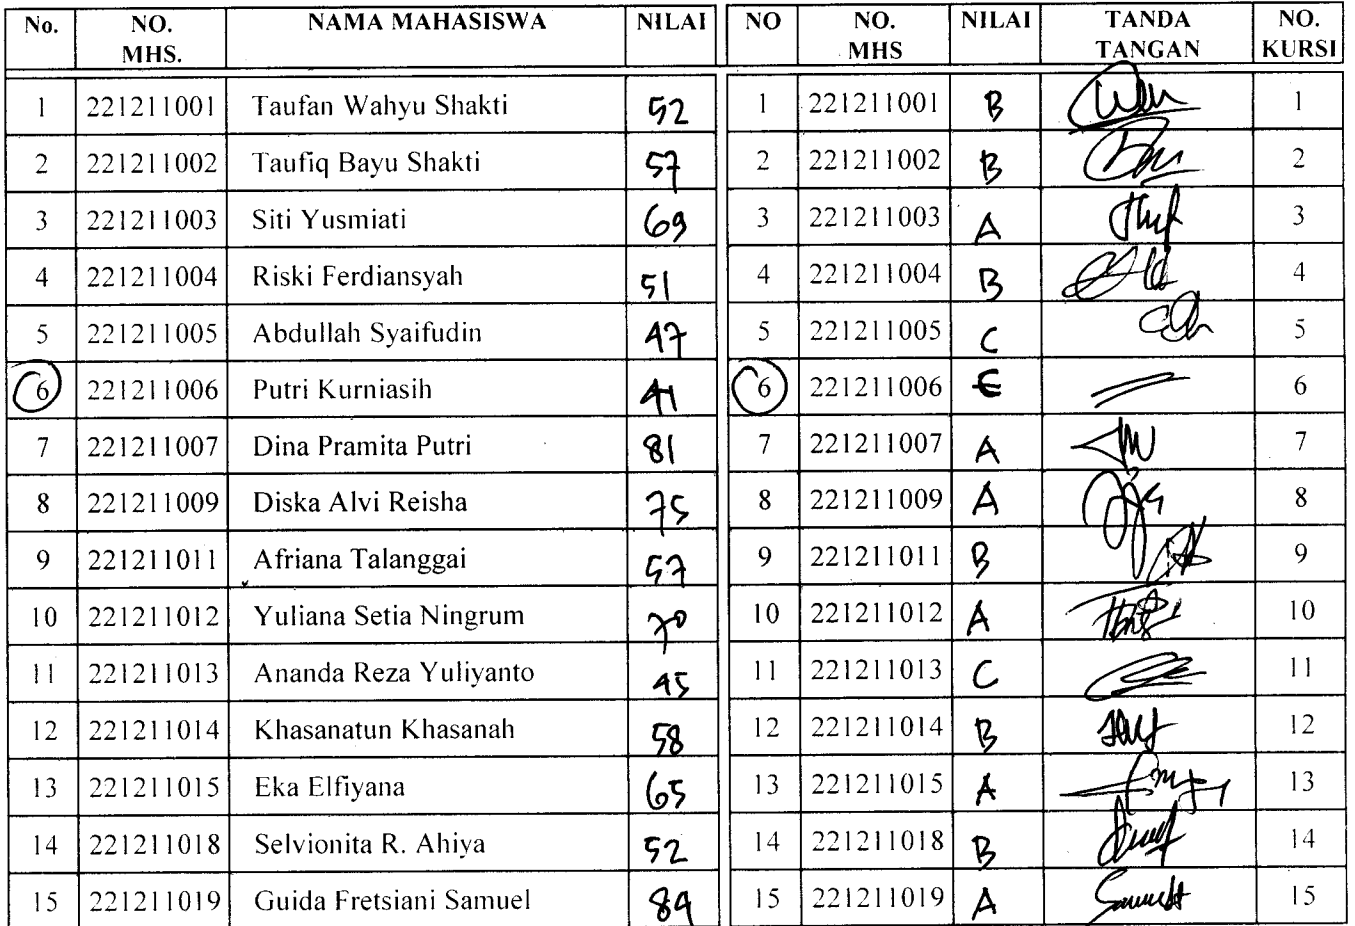 No. NO. MHS. NAMA MAHASISWA NILAI NO NO. MHS NILAI TANDA TANGAN NO. KURSI
1 221211001 Taufan Wahyu Shakti 52 1 221211001 B 1
2 221211002 Taufiq Bayu Shakti 57 2 221211002 B 2
3 221211003 Siti Yusmiati 69 3 221211003 A 3
4 221211004 Riski Ferdiansyah 51 4 221211004 B 4
5 221211005 Abdullah Syaifudin 47 5 221211005 C 5
6 221211006 Putri Kurniasih 41 6 221211006 6
7 221211007 Dina Pramita Putri 81 7 221211007 A 7
8 221211009 Diska Alvi Reisha 75 8 221211009 A 8
9 221211011 Afriana Talanggai 57 9 221211011 B 9
10 221211012 Yuliana Setia Ningrum 70 10 221211012 A 10
11 221211013 Ananda Reza Yuliyanto 45 11 221211013 C 11
12 221211014 Khasanatun Khasanah 58 12 221211014 B 12
13 221211015 Eka Elfiyana 65 13 221211015 A 13
14 221211018 Selvionita R. Ahiya 52 14 221211018 B 14
15 221211019 Guida Fretsiani Samuel 89 15 221211019 A 15